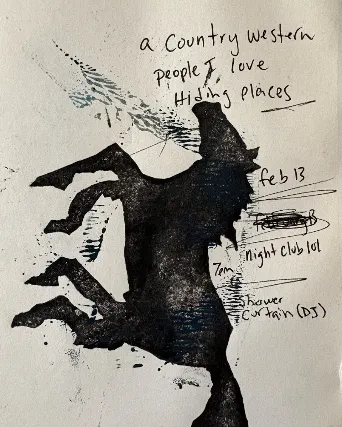 a Country western
people I love
Hiding places
feb 13
night club 101
7pm
Shower
Curtain (DJ)